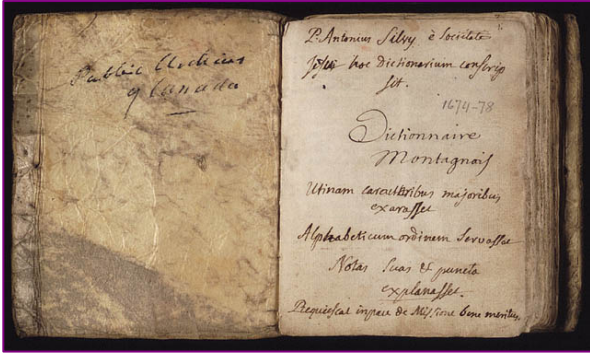 Public Archives
of Canada
P. Antonius Silvy è Societate
Jesu hoc Dictionarium conscrip
sit.
1674-78
Dictionnaire
Montagnois
Utinam caracteribus majoribus
exarasset
Alphabeticum ordinem servasset
Notas suas & puncta
explanasset.
Requiescat in pace de Missione bene meritus.